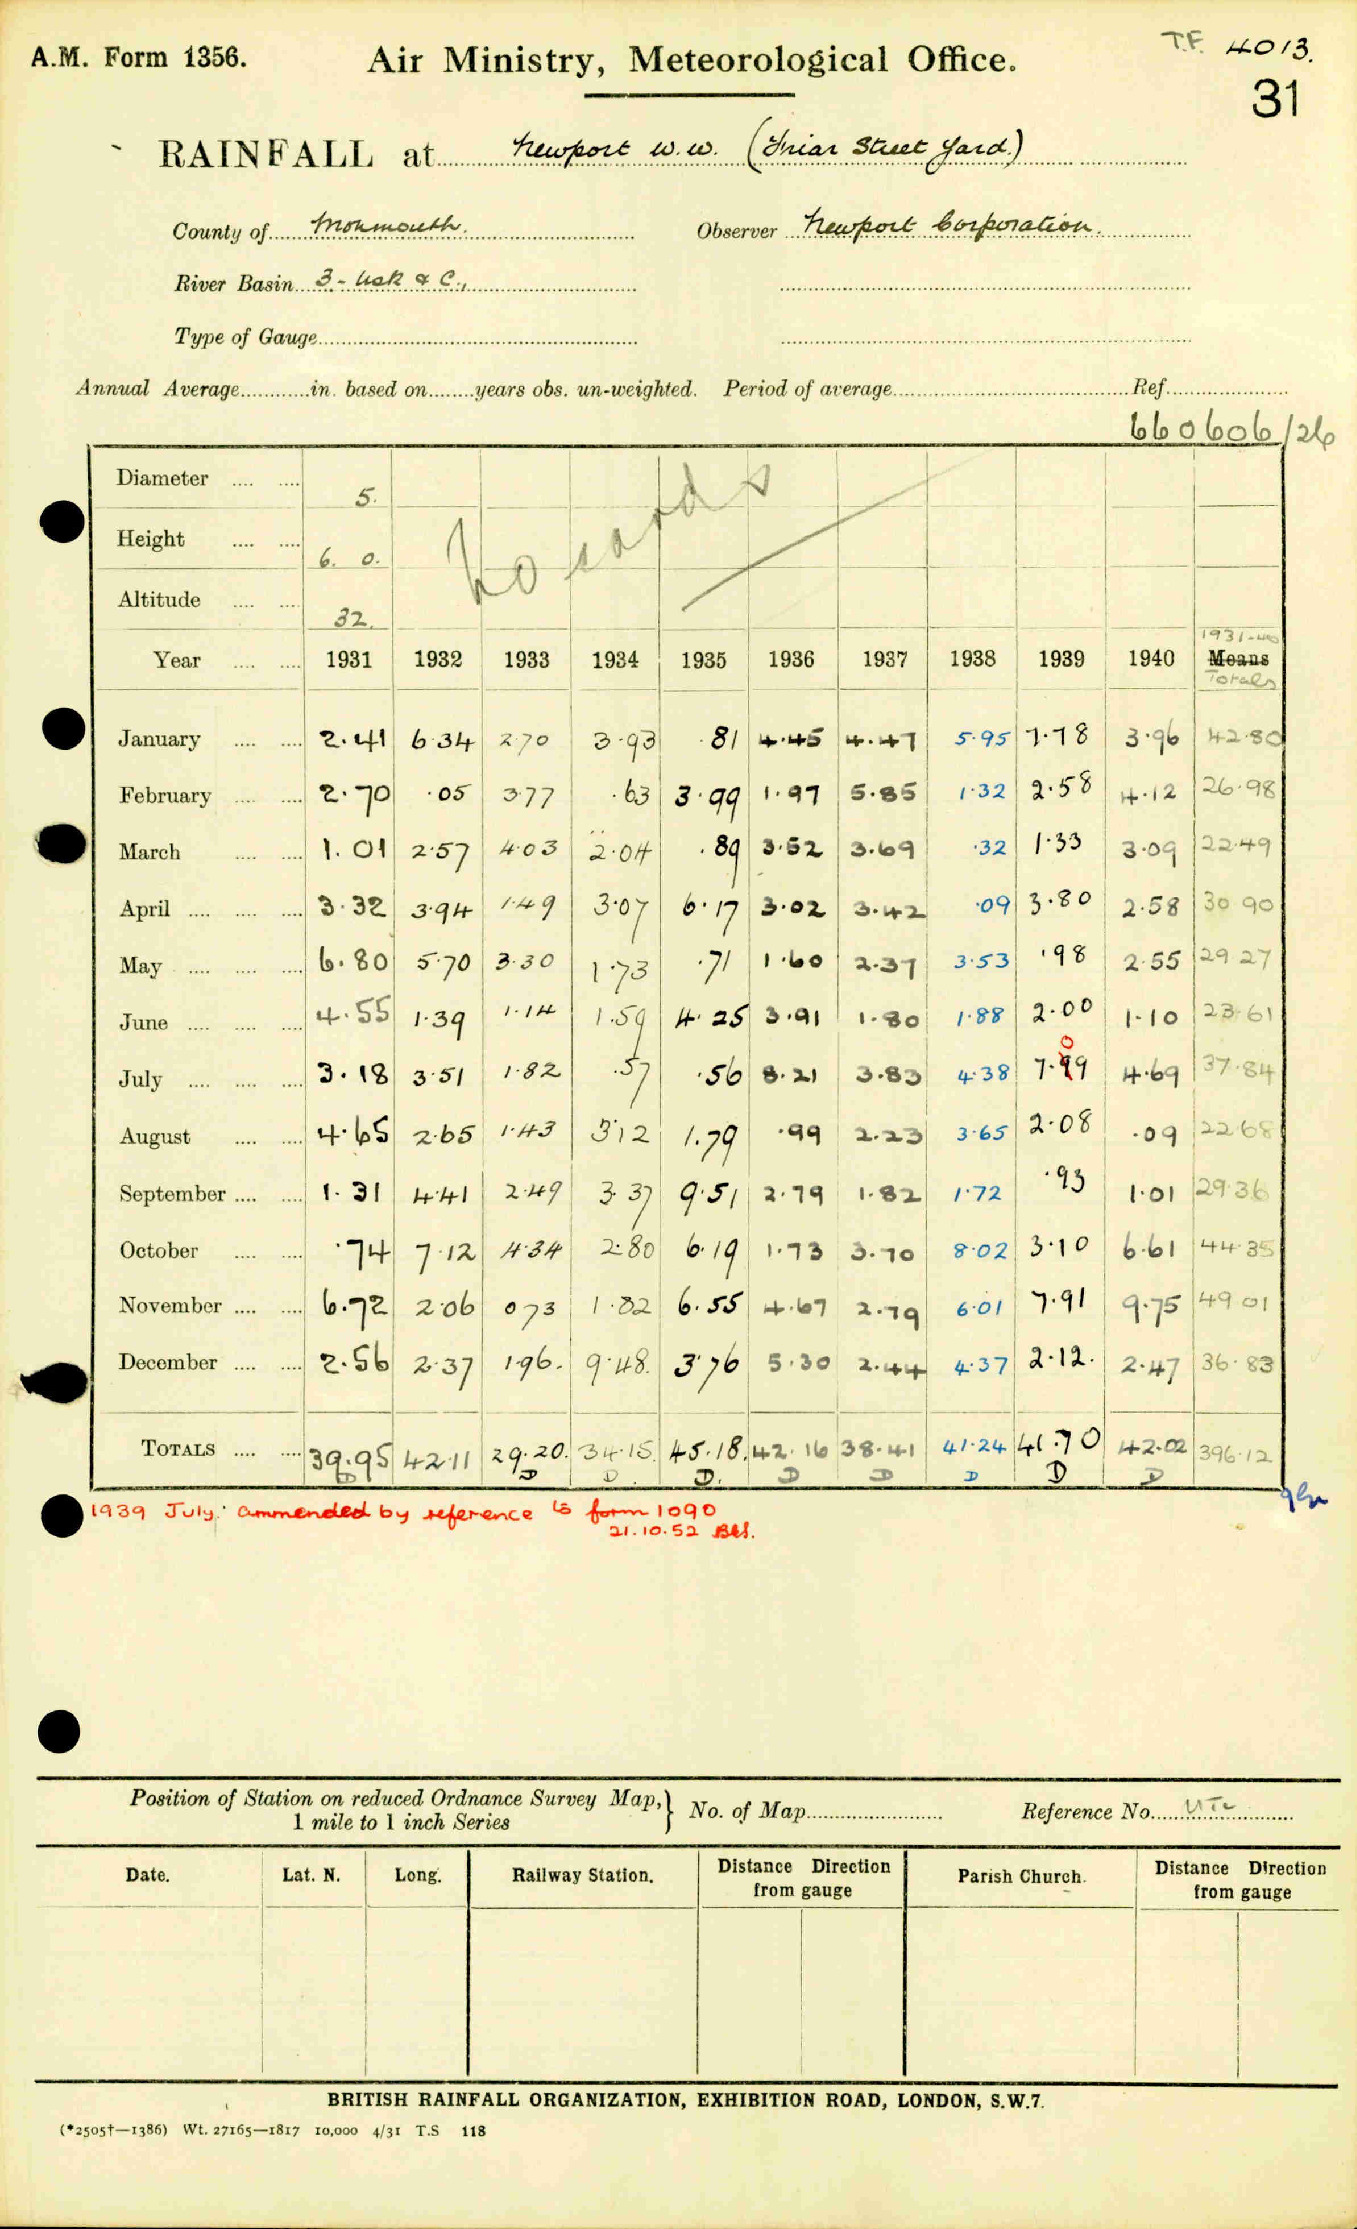 A.M. Form 1356.
Air Ministry, Meteorological Office.
T.F. 4013.
31
RAINFALL at Newport W.W. (Friar Street Yard.)
County of Monmouth.
Observer Newport Corporation.
River Basin 3 - Usk & C.,
Type of Gauge
Annual Average in. based on years obs. un-weighted. Period of average Ref.
660606/26
Diameter 5.
Height 6. 0.
Altitude 32.
No cards
1931-40
Year 1931 1932 1933 1934 1935 1936 1937 1938 1939 1940 Means
Totals
January 2.41 6.34 2.70 3.93 .81 4.45 4.47 5.95 7.78 3.96 42.80
February 2.70 .05 3.77 .63 3.99 1.97 5.85 1.32 2.58 4.12 26.98
March 1.01 2.57 4.03 2.04 .89 3.52 3.69 .32 1.33 3.09 22.49
April 3.32 3.94 1.49 3.07 6.17 3.02 3.42 .09 3.80 2.58 30 90
May 6.80 5.70 3.30 1.73 .71 1.60 2.37 3.53 .98 2.55 29 27
June 4.55 1.39 1.14 1.59 4.25 3.91 1.80 1.88 2.00 1.10 23.61
0
July 3.18 3.51 1.82 .57 .56 8.21 3.83 4.38 7.99 4.69 37.84
August 4.65 2.65 1.43 3.12 1.79 .99 2.23 3.65 2.08 .09 22 68
September 1.31 4.41 2.49 3.37 9.51 2.79 1.82 1.72 .93 1.01 29.36
October .74 7.12 4.34 2.80 6.19 1.73 3.70 8.02 3.10 6.61 44.35
November 6.72 2.06 0 73 1.82 6.55 4.67 2.79 6.01 7.91 9.75 49 01
December 2.56 2.37 1.96. 9.48. 3.76 5.30 2.44 4.37 2.12. 2.47 36.83
TOTALS 39.95 42.11 29.20. 34.15. 45.18. 42.16 38.41 41.24 41.70 42.02 396.12
D D D D. D D D D D
1939 July. ammended by reference to form 1090
21.10.52
Position of Station on reduced Ordnance Survey Map,
1 mile to 1 inch Series
No. of Map
Reference No.
Date. Lat. N. Long. Railway Station. Distance Direction from gauge Parish Church. Distance Direction from gauge
BRITISH RAINFALL ORGANIZATION, EXHIBITION ROAD, LONDON, S.W.7.
(*2505†—1386) Wt. 27165—1817 10,000 4/31 T.S 118